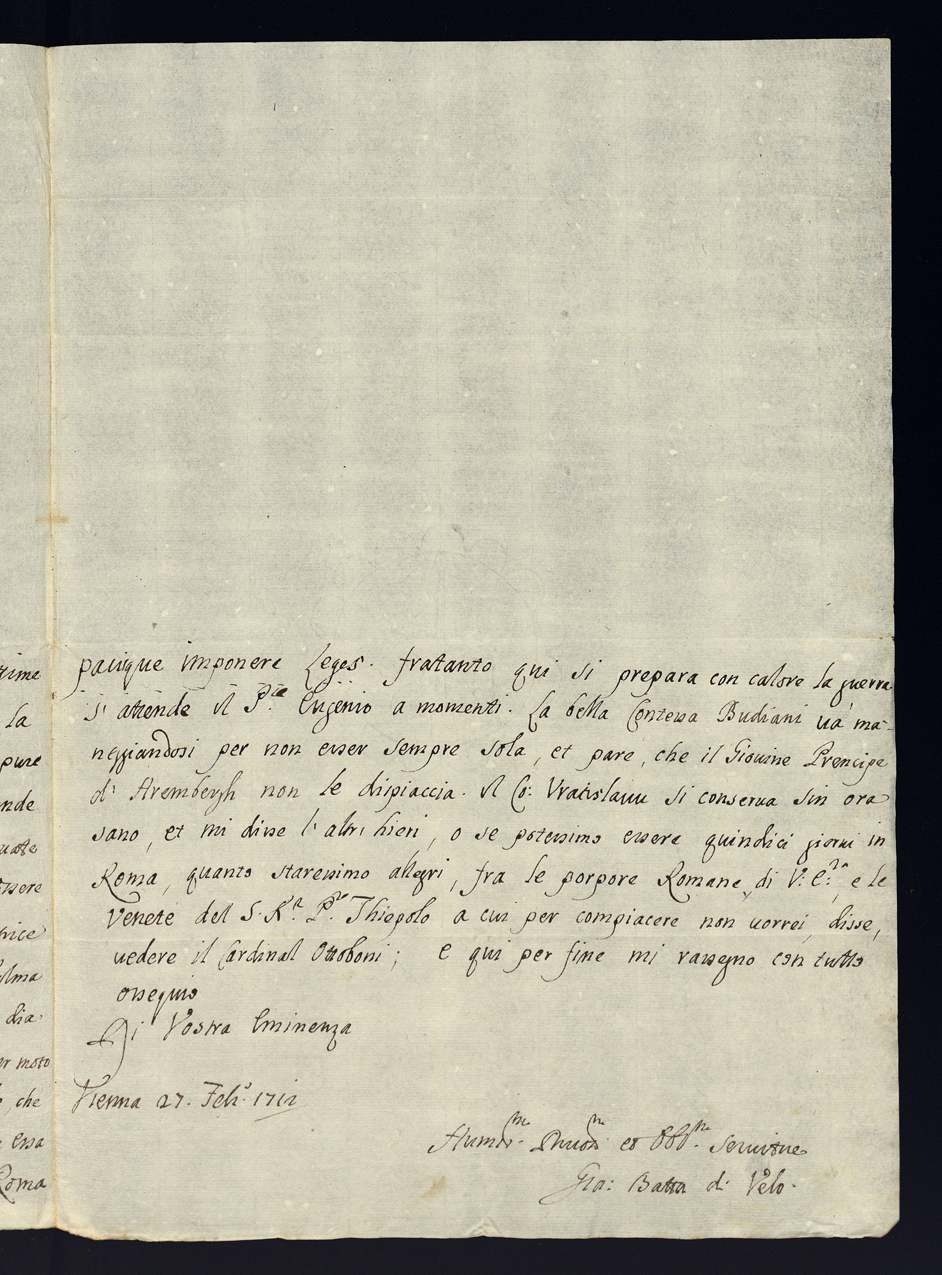 pacique imponere Leges. fratanto qui si prepara con calore la guerra.
S'attende il P.pe Eugenio a momenti. La bella Contessa Budiani uà ma-
neggiandosi per non esser sempre sola, et pare, che il Giouine Prencipe
d'Arembergh non le dispiaccia. Il Co: Vratislauu si conserua sin ora
sano, et mi disse l'altri hieri, o se potessimo essere quindici giorni in
Roma, quanto staressimo allegri, fra le porpore Romane di V. E.za e le
Venete del S. K.r P.r Thiepolo a cui per compiacere non uorrei, disse,
uedere il Cardinal Ottoboni; e qui per fine mi rassegno con tutto
ossequio
Di Vostra Eminenza
Vienna 27. Feb.o 1712
Humil.mo Diuot.mo et Obb.mo Seruitore
Gio: Batta di Velo.
rime
la
pure
nde
uate
essere
rice
ulma
dia-
er moto
che
Essa
Roma